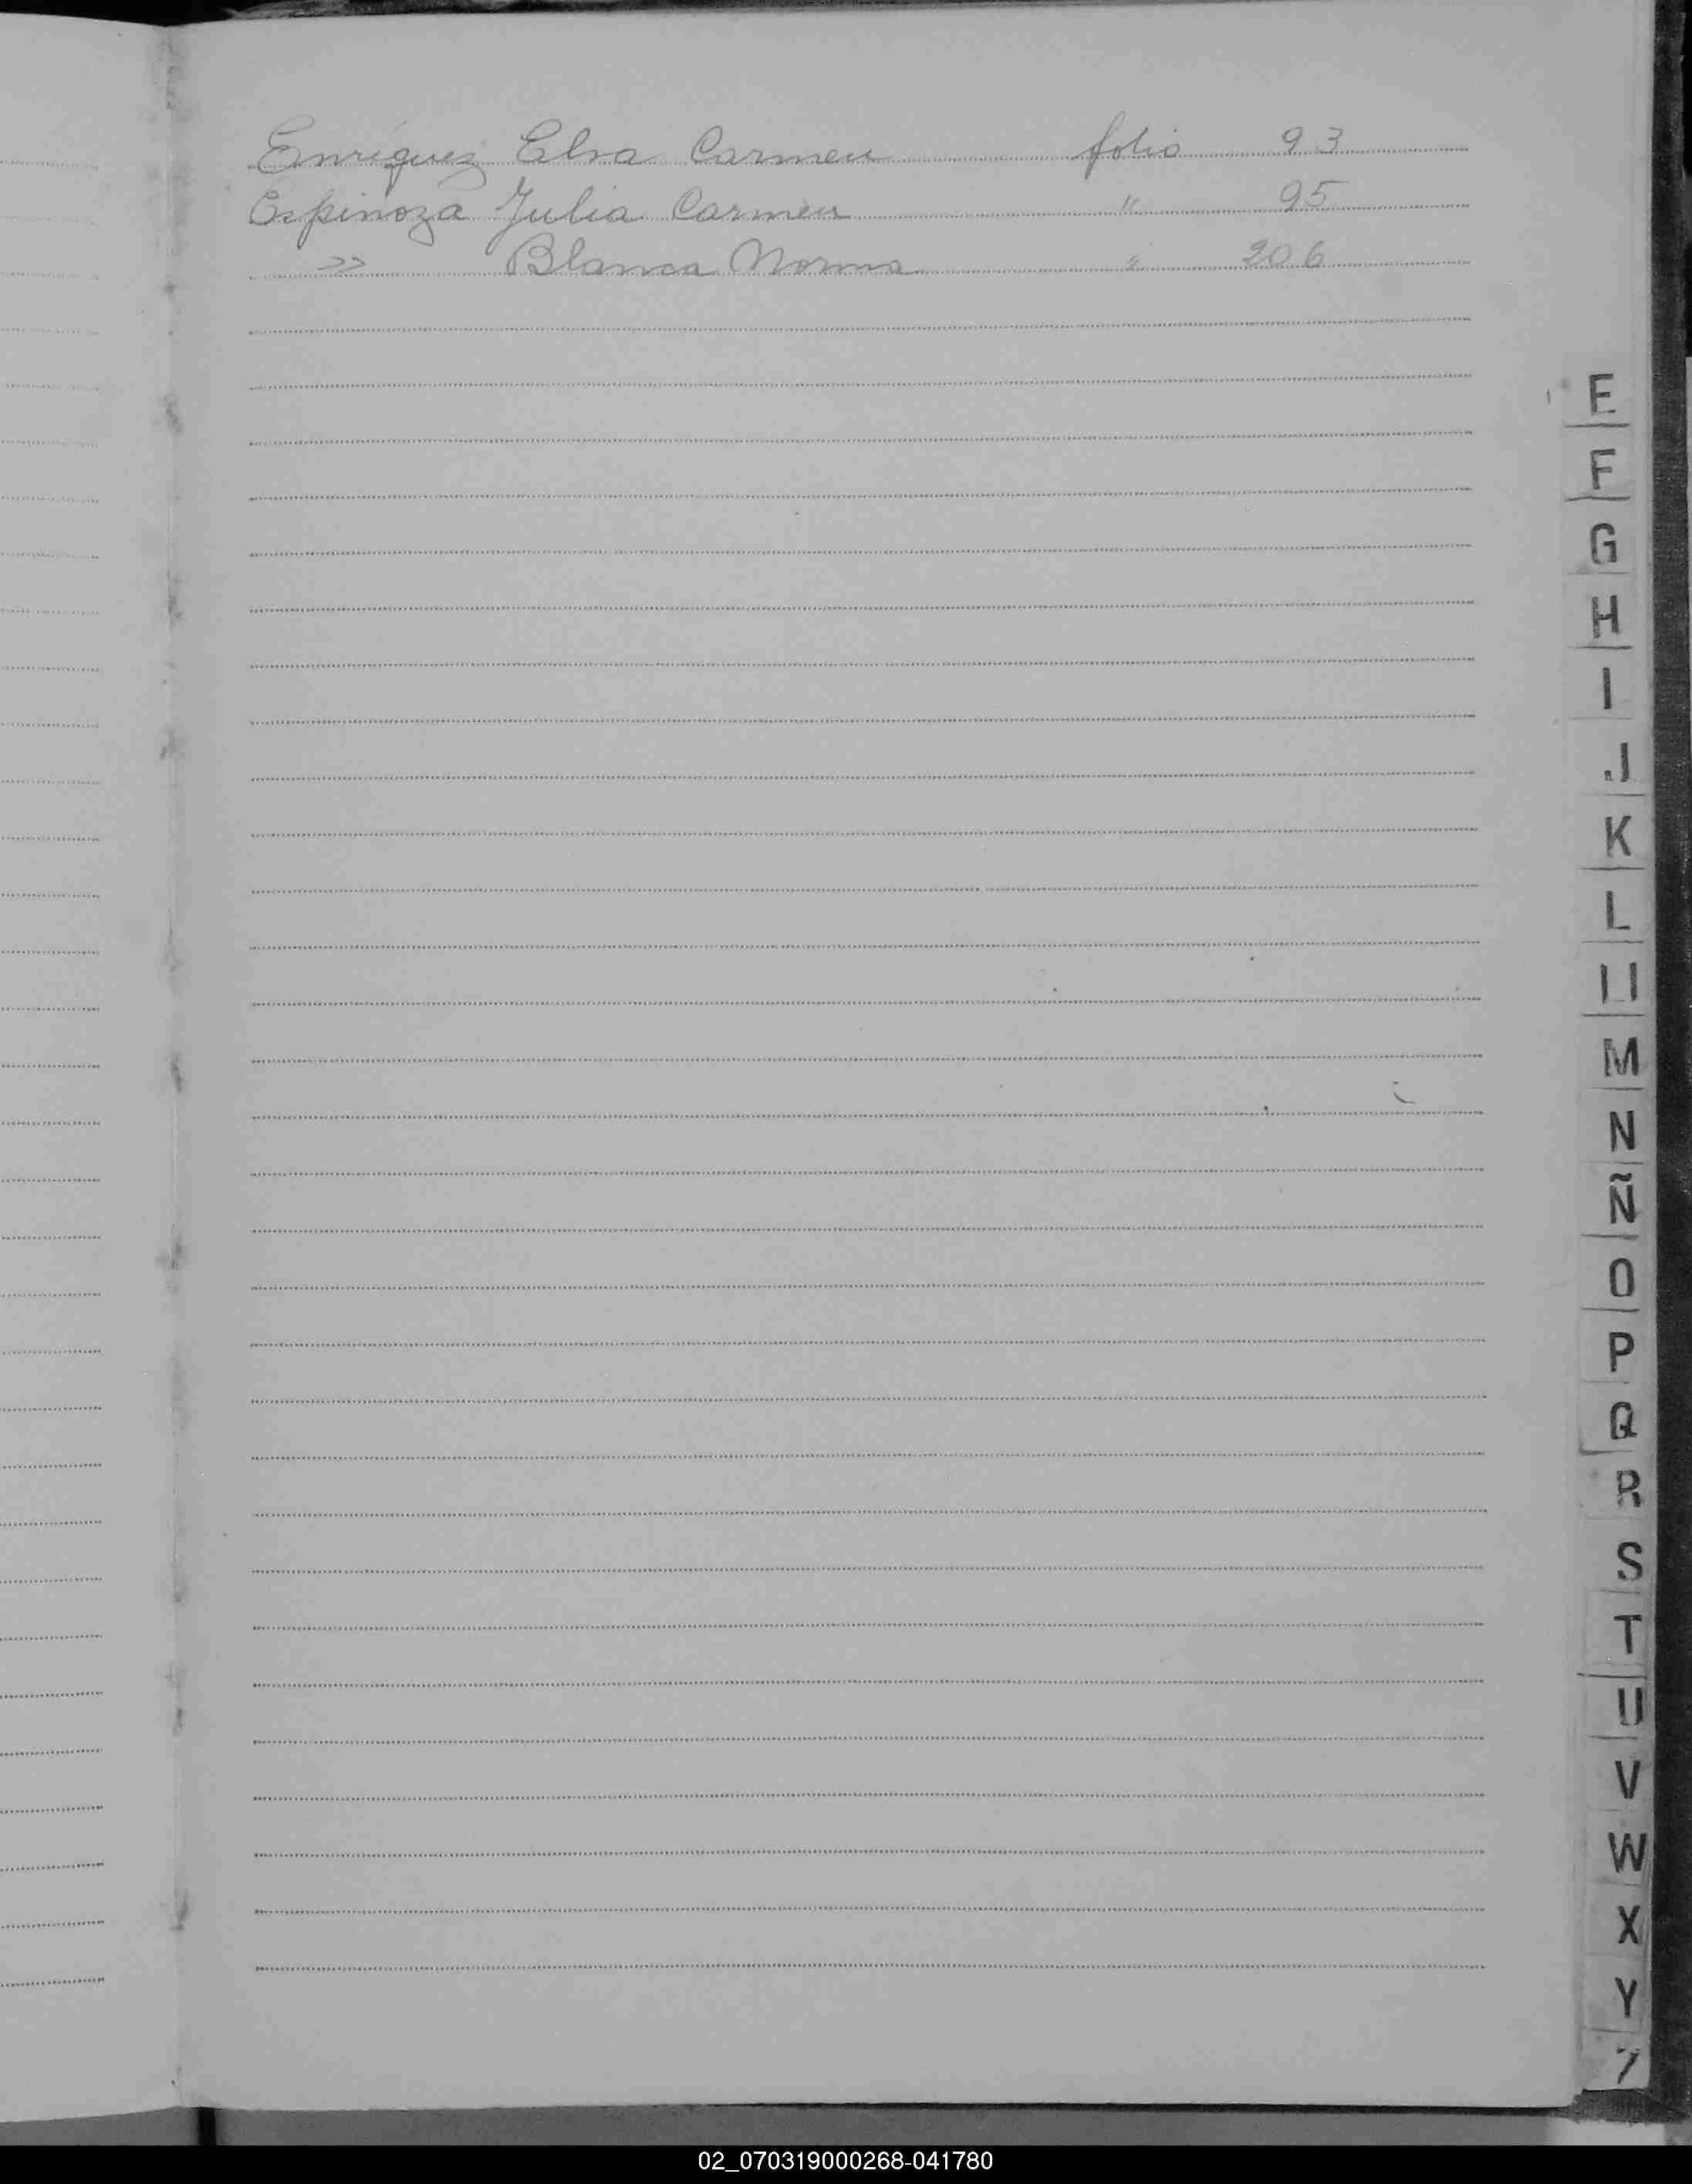 Enriquez Elsa Carmen folio 93
Espinoza Julia Carmen " 95
>> Blanca Norma " 206
E
F
G
H
I
J
K
L
Ll
M
N
Ñ
O
P
Q
R
S
T
U
V
W
X
Y
Z
02_070319000268-041780